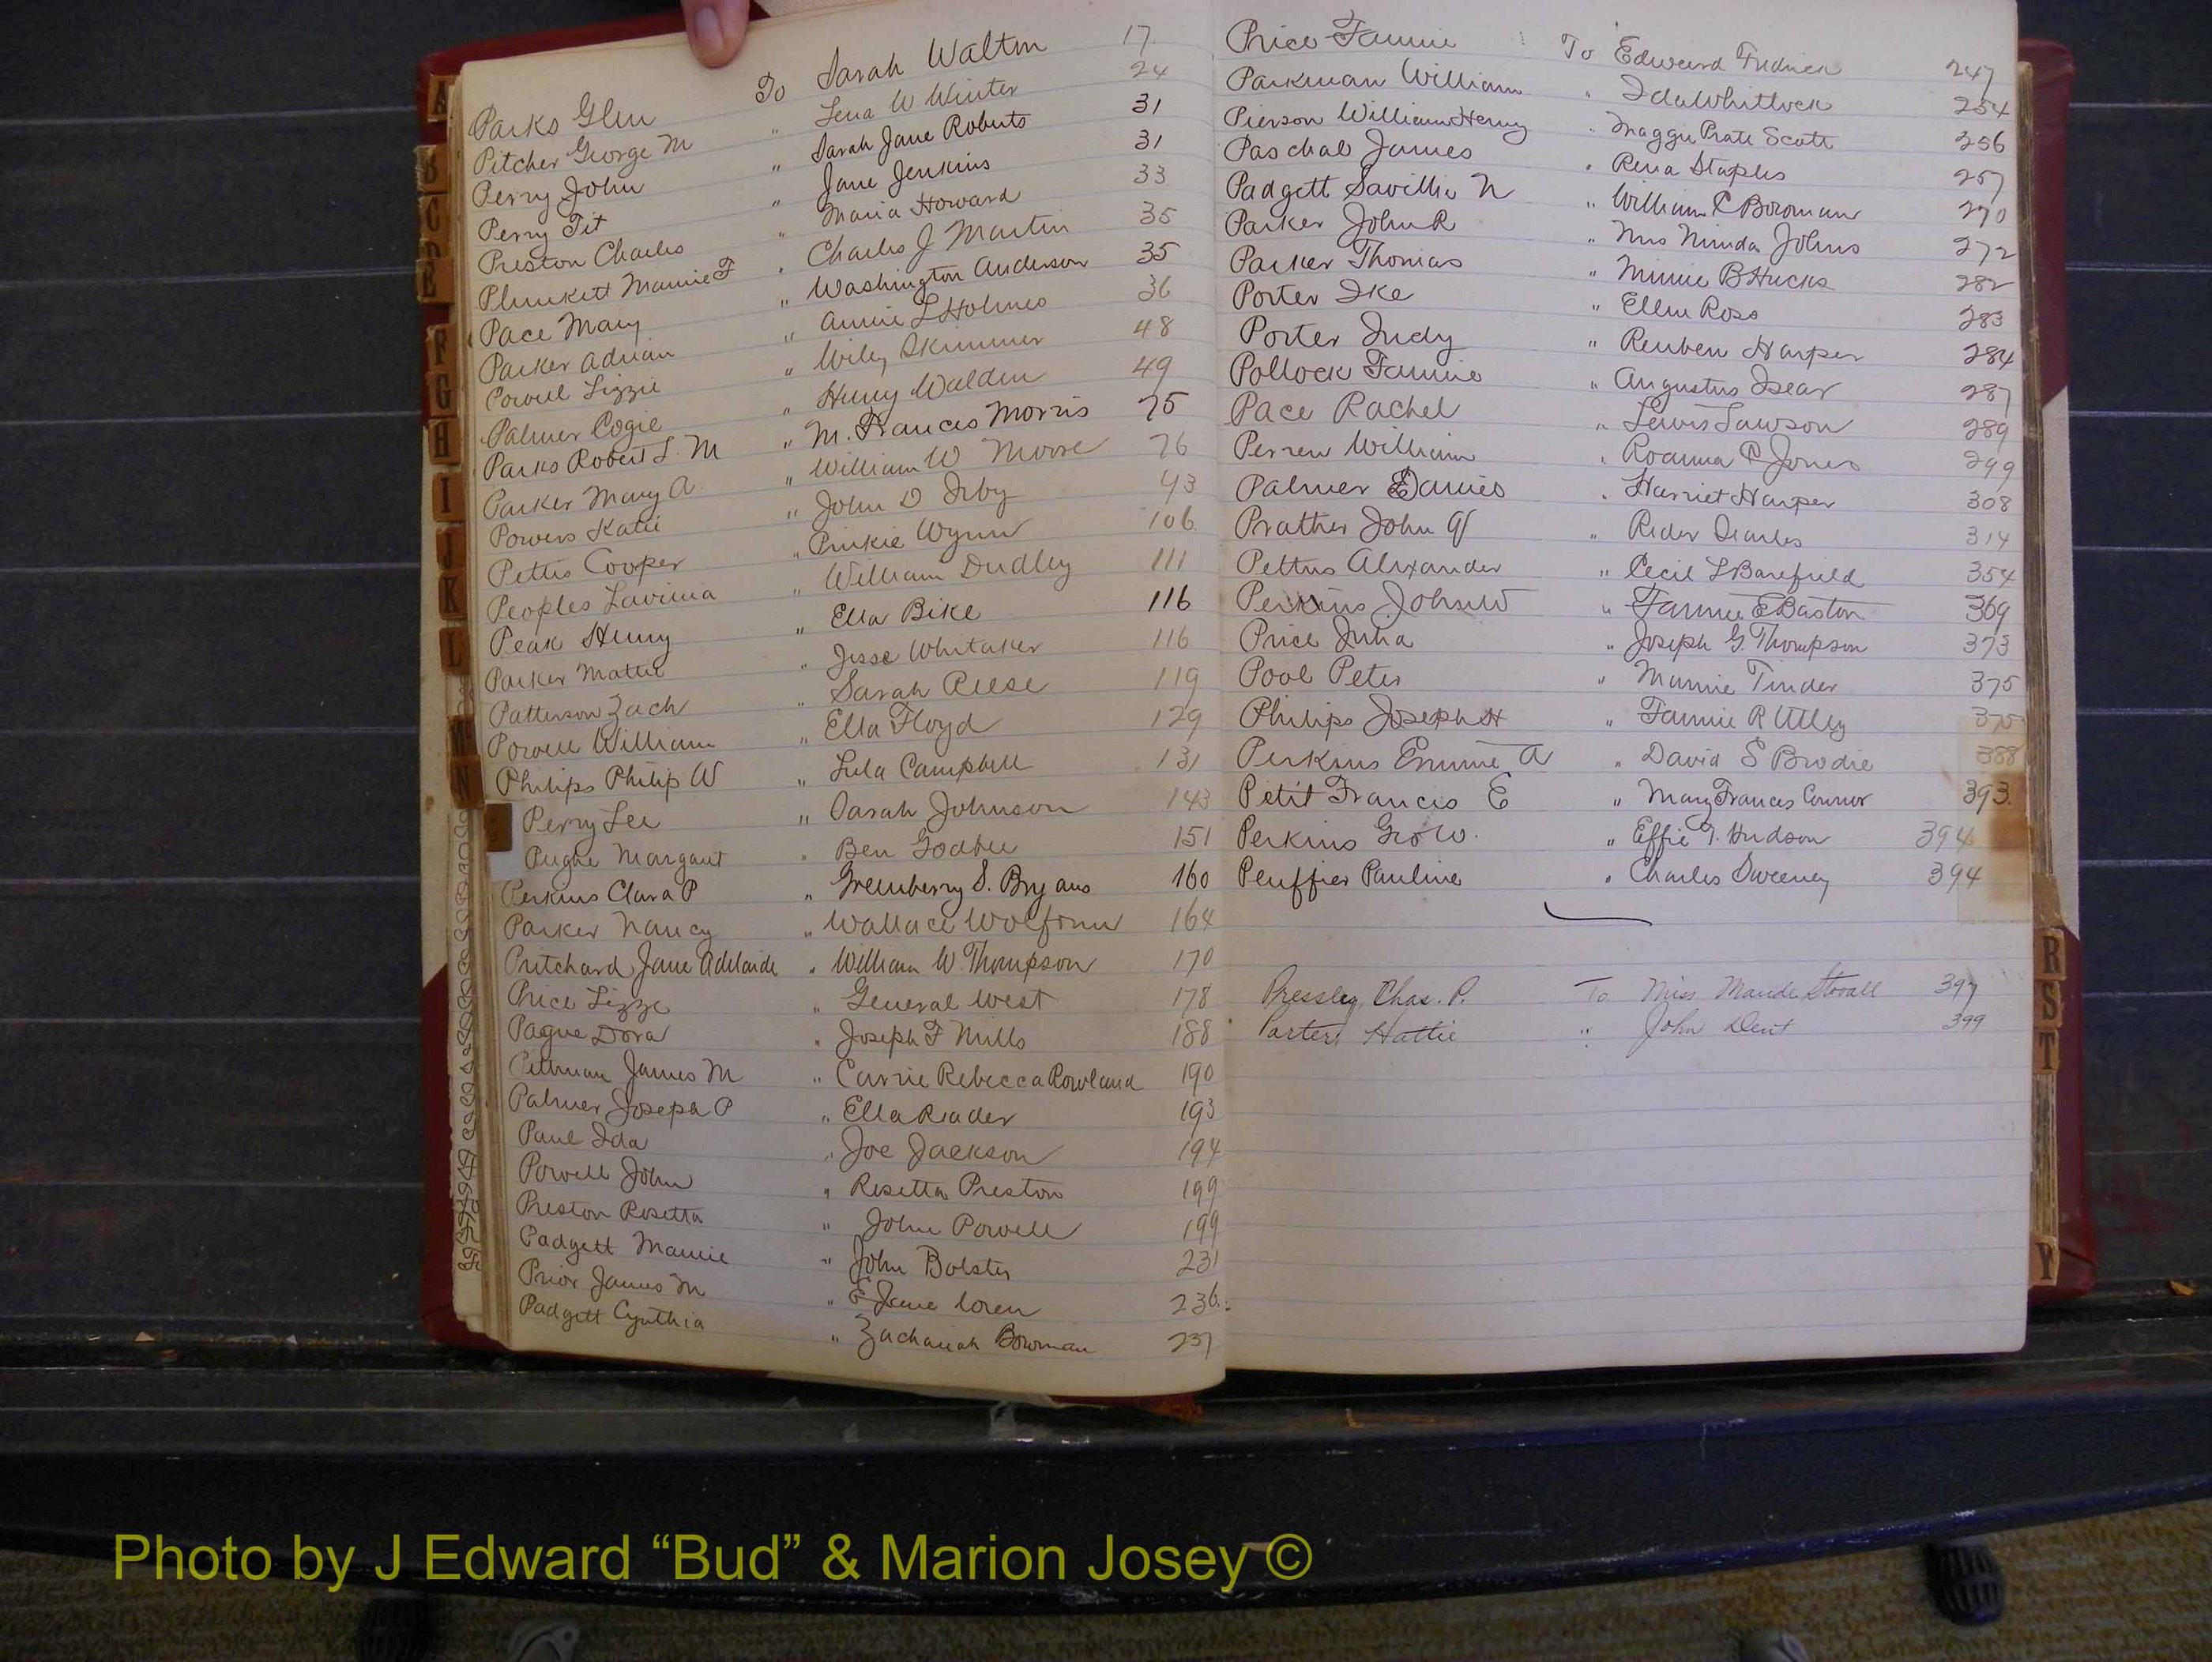 Parks Glen To Sarah Walton 17
Pitcher George M " Lena W Winter 24
Perry John " Sarah Jane Roberts 31
Perry Tit " Jane Jenkins 31
Preston Charles " Maria Howard 33
Plunkett Mamie F " Charles J Martin 35
Pace Mary " Washington Anderson 35
Parker Adrian " Annie L Holmes 36
Powell Lizzie " Wiley Skinner 48
Palmer Cogie " Henry Walden 49
Parks Robert L. M " M. Frances Morris 75
Parker Mary A. " William W Moore 76
Powers Katie " John D Irby 93
Pettis Cooper " Pinkie Wynn 106
Peoples Lavinia " William Dudley 111
Peak Henry " Ella Bike 116
Parker Mattie " Jesse Whitaker 116
Patterson Zach " Sarah Reese 119
Powell William " Ella Floyd 129
Philips Philip W " Lula Campbell 131
Perry Lee " Sarah Johnson 143
Pughe Margaret " Ben Godbee 151
Perkins Clara P " Greenberry S. Bryans 160
Parker Nancy " Wallace 164
Pritchard Jane Adelaide " William W. Thompson 170
Price Lizze " General West 178
Pague Dora " Joseph F Mills 188
Pittman James M " Carrie Rebecca Rowland 190
Palmer Joseph P " Ella Reader 193
Paul Ida " Joe Jackson 194
Powell John " Rosetta Preston 199
Preston Rosetta " John Powell 199
Padgett Mamie " John Bolster 231
Prior James M " E Jane Coren 236
Padgett Cynthia " Zachariah Bowman 237
Price Fannie To Edward Fredrick 247
Parkman William " Ida Whitlock 254
Pierson William Henry " Maggie Pratt Scott 256
Paschal James " Rena Staples 257
Padgett Savillie N " William C Bowman 270
Parker John R " Mrs Ninda Johns 272
Parker Thomas " Minnie B Hucks 282
Porter Ike " Ellen Ross 283
Porter Judy " Reuben Harper 284
Pollock Fannie " Augustus Isear 287
Pace Rachel " Lewis Lawson 289
Perren William " Roanna C Jones 299
Palmer Daniel " Harriet Harper 308
Prather John W " Rider 314
Pettus Alexander " Cecil L Barefield 354
Perkins John W " Fannie E Baston 369
Price Julia " Joseph G. Thompson 373
Pool Peter " Mamie Tinder 375
Philips Joseph H " Fannie R Utley 375
Perkins Emmie A " David S Brodie 388
Petit Francis E " Mary Frances Connor 393
Perkins Geo W. " Effie T. Hudson 394
Peuffier Pauline " Charles Sweeney 394
Pressley, Chas. P. To Miss Maude Stovall 397
Porter, Hattie " John Dent 399
A
B
C
D
E
F
G
H
I
J
K
L
M
N
R
S
T
Y
Photo by J Edward “Bud” & Marion Josey ©